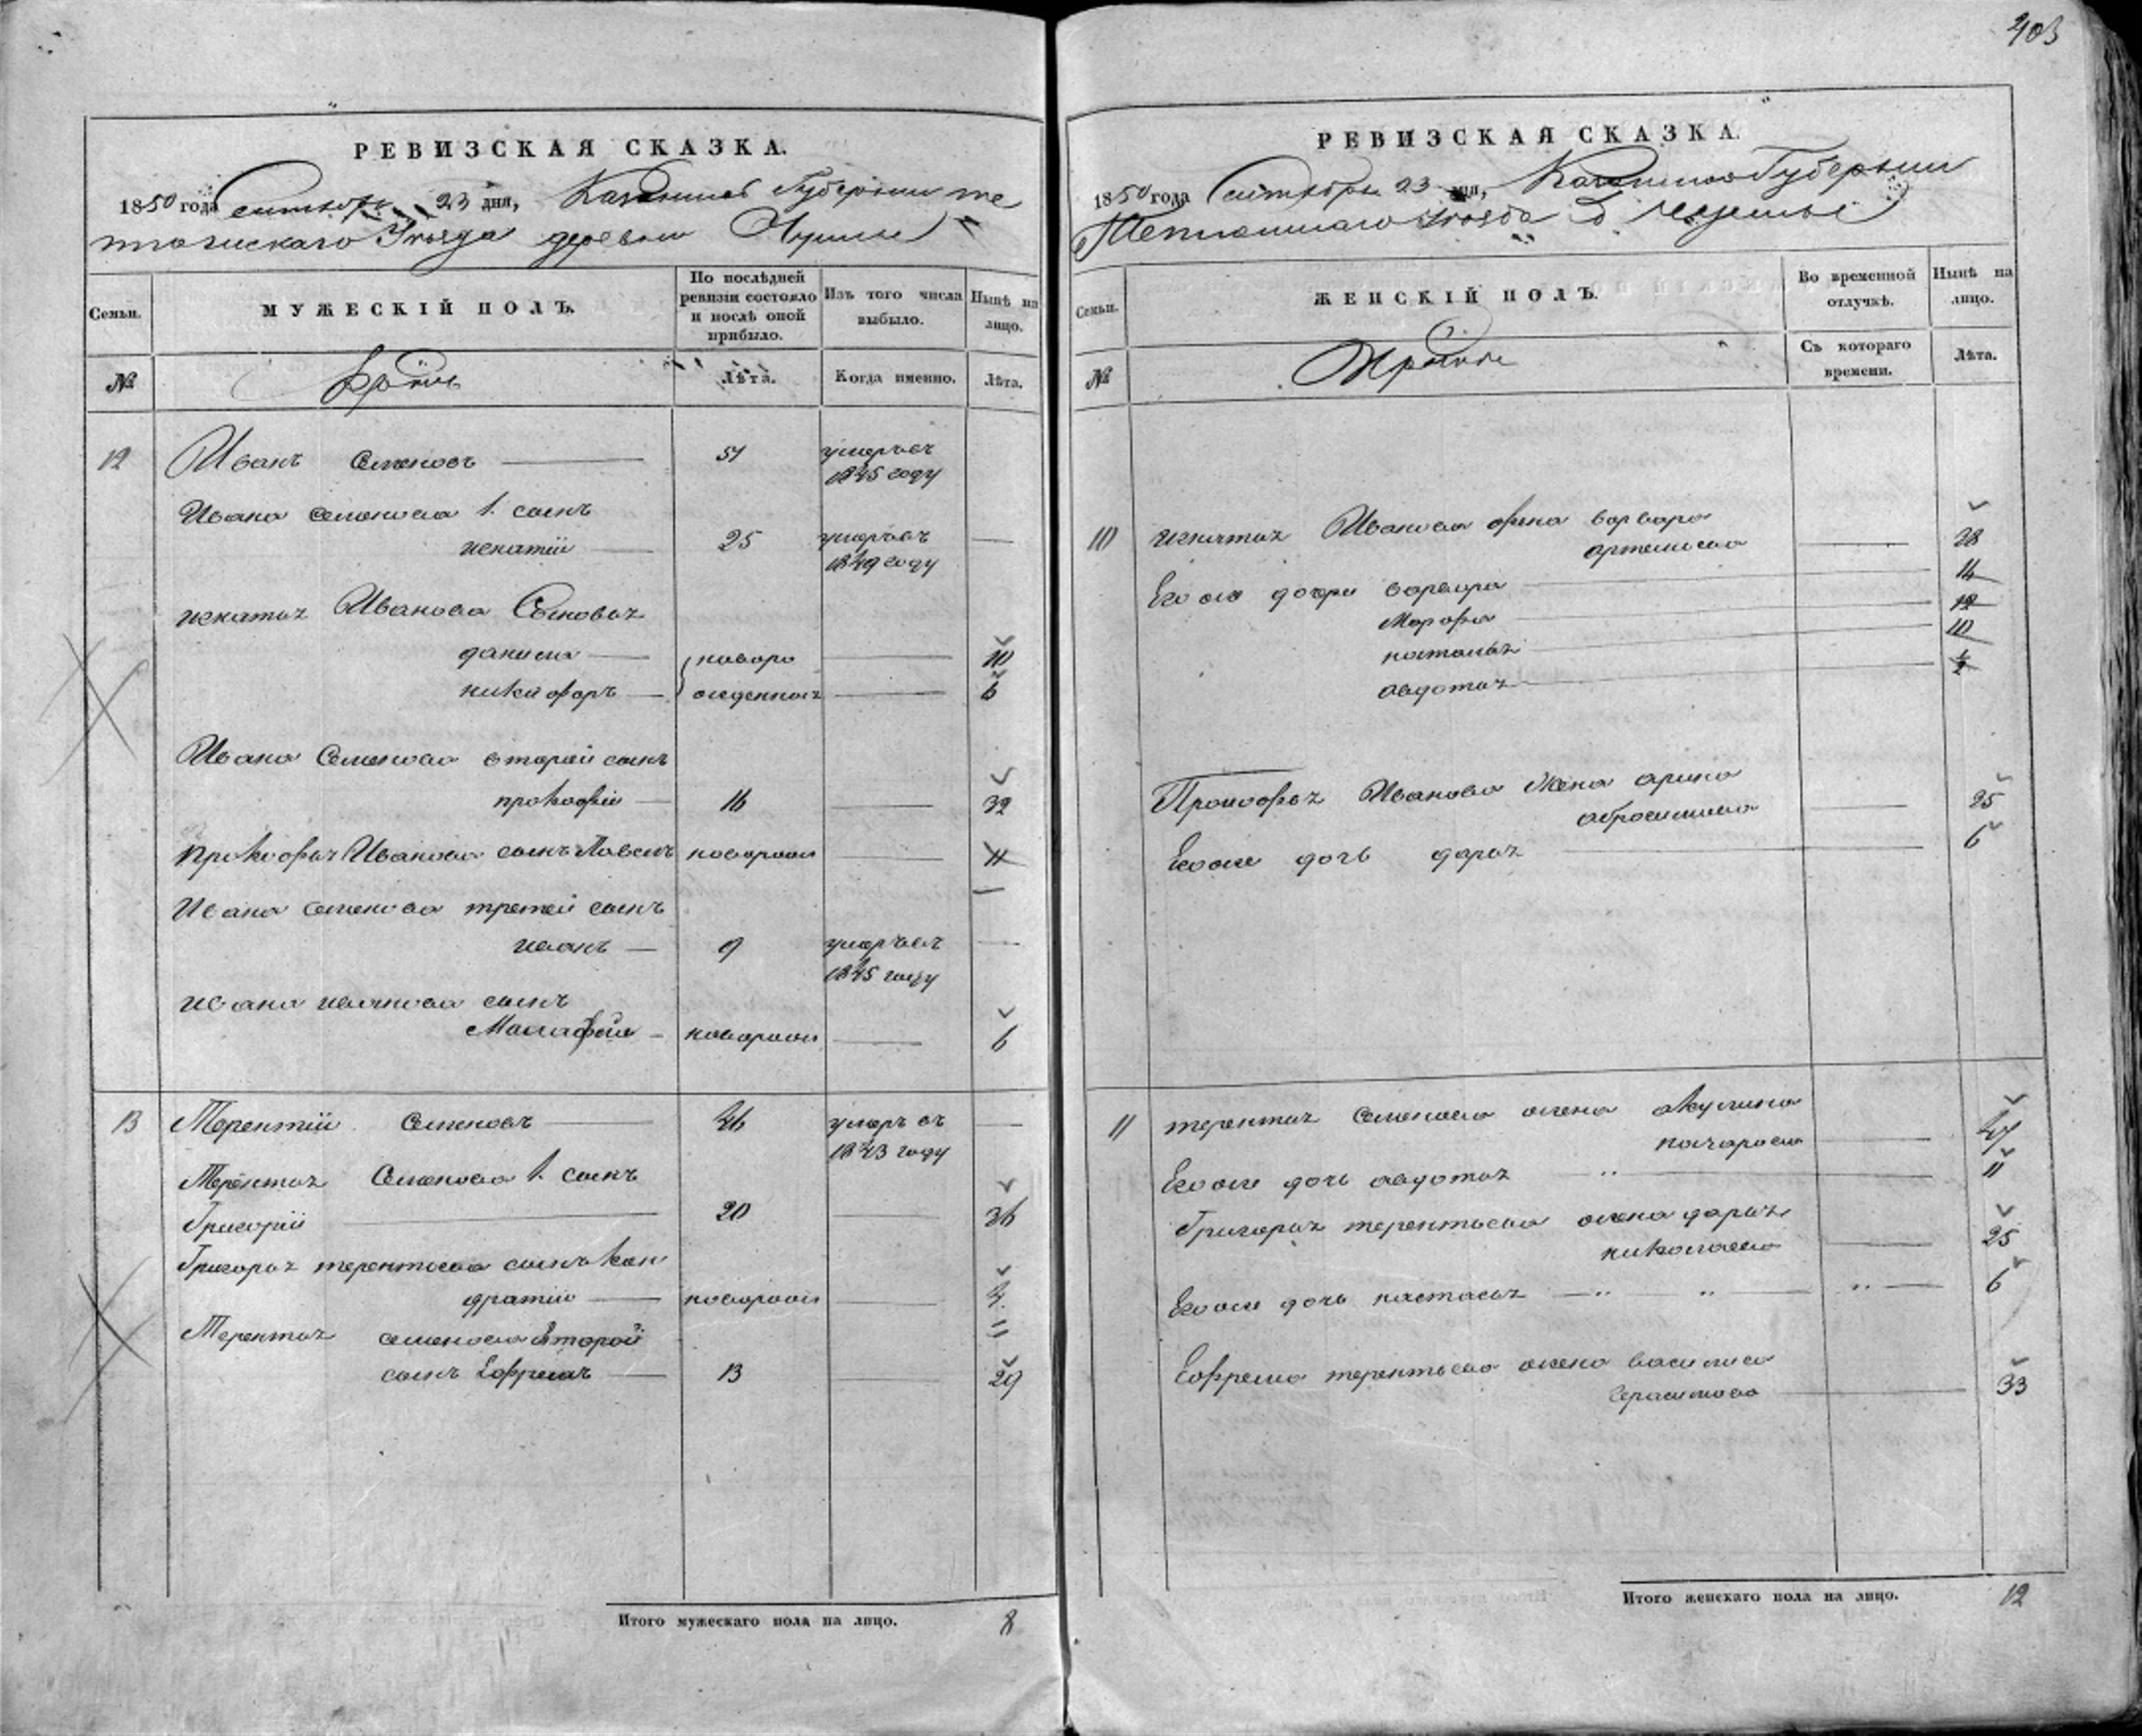 403
РЕВИЗСКАЯ СКАЗКА.
1850 года сентября 23 дня, Казанской Губернии те
тюшскаго Уъзда деревни
Семьи.
МУЖЕСКІЙ ПОЛЪ.
По послѣдней ревизіи состояло и послѣ оной прибыло.
Изъ того числа выбыло.
Нынѣ на лицо.
№
Лѣта.
Когда именно.
Лѣта.
12 Иванъ Семеновъ 51 умеръ въ
1845 году
Ивана Семенова 1. сынъ
игнатій 25 умеръ въ
1849 году
игнатья Иванова Сыновья
данила новоро 10
никифоръ жденныя 6
Ивана Семенова второй сынъ
прокофій 16 32
прокофья Иванова сынъ Павелъ новорож 11
Ивана семенова третей сынъ
иванъ 9 умеръ въ
1845 году
ивана иванова сынъ
новорож 6
13 Терентій Семеновъ 46 умеръ въ
1843 году
Терентья Семенова 1. сынъ
Григорій 20 36
Григорья терентьева сынъ кон
дратій новорож 4.
Терентья семенова второй
сынъ Ефремъ 13 29
Итого мужескаго пола на лицо. 8
РЕВИЗСКАЯ СКАЗКА.
1850 года сентября 23 дня, Казанской Губернии
Тетюшскаго Уъзда д.
Семьи.
ЖЕНСКІЙ ПОЛЪ.
Во временной отлучкѣ.
Нынѣ на лицо.
№
Съ котораго времени.
Лѣта.
10 игнатья Иванова жена варвара
артемьева 28
Его же дочери варвара 14
Марфа 12
настасья 10
авдотья
Прокофья Иванова Жена арина
абросимова 25
Его же дочь дарья 6
11 терентья Семенова жена акулина
назарова 47
Его же дочь авдотья 11
Григорья терентьева жена дарья
николаева 25
Его же дочь настасья 6
Ефрема терентьева жена василиса
герасимова 33
Итого женскаго пола на лицо. 12